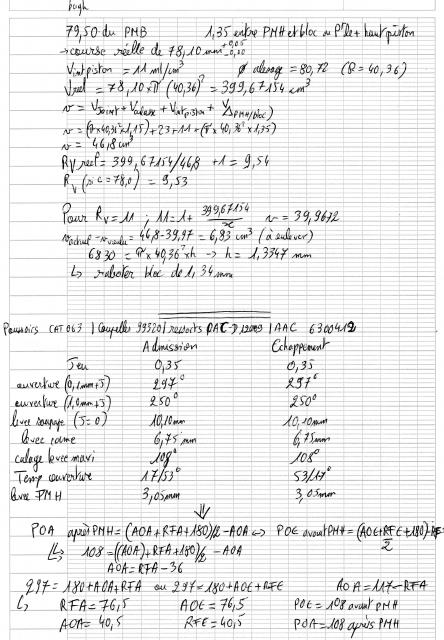 79,50 du PMB 1,35 entre PMH et bloc ou P^t le + haut piston
→ course réelle de 78,10 mm +0,05 -0,00
Vint piston = 11 ml/cm³ Ø alesage = 80,72 (R = 40,36)
Vreel = 78,10 x π (40,36)² = 399,67154 cm³
v = Vjoint + Vculasse + Vint piston + V(ΔPMH/bloc)
v = (π x 40,36² x 1,15) + 23 + 11 + (π x 40,36² x 1,35)
v = 46,8 cm³
Rv reel = 399,67154/46,8 + 1 = 9,54
Rv (si c = 78,0) = 9,53
Pour Rv = 11 ; 11 = 1 + 399,67154/x v = 39,9672
vactuel - vvoulu = 46,8 - 39,97 = 6,83 cm³ (à enlever)
6830 = π x 40,36² x h → h = 1,3347 mm
↳ raboter bloc de 1,34 mm
Poussoirs CAT063 | Coupelles 99520 | ressorts | AAC 6300412
Admission Echappement
Jeu 0,35 0,35
ouverture (0,1mm+J) 297° 297°
ouverture (1,0mm+J) 250° 250°
levée soupape (J=0) 10,10mm 10,10mm
levée came 6,75 mm 6,75mm
calage levée maxi 108° 108°
Temp ouverture 17/53° 53/17°
levée PMH 3,05mm 3,05mm
⇓
POA après PMH = (AOA + RFA + 180)/2 - AOA ⇔ POE avant PMH = (AOE + RFE + 180)/2 - RFE
↳ 108 = ((AOA) + RFA + 180)/2 - AOA
AOA = RFA - 36
297 = 180 + AOA + RFA ou 297 = 180 + AOE + RFE AOA = 117 - RFA
↳ RFA = 76,5 AOE = 76,5 POE = 108 avant PMH
AOA = 40,5 RFE = 40,5 POA = 108 après PMH